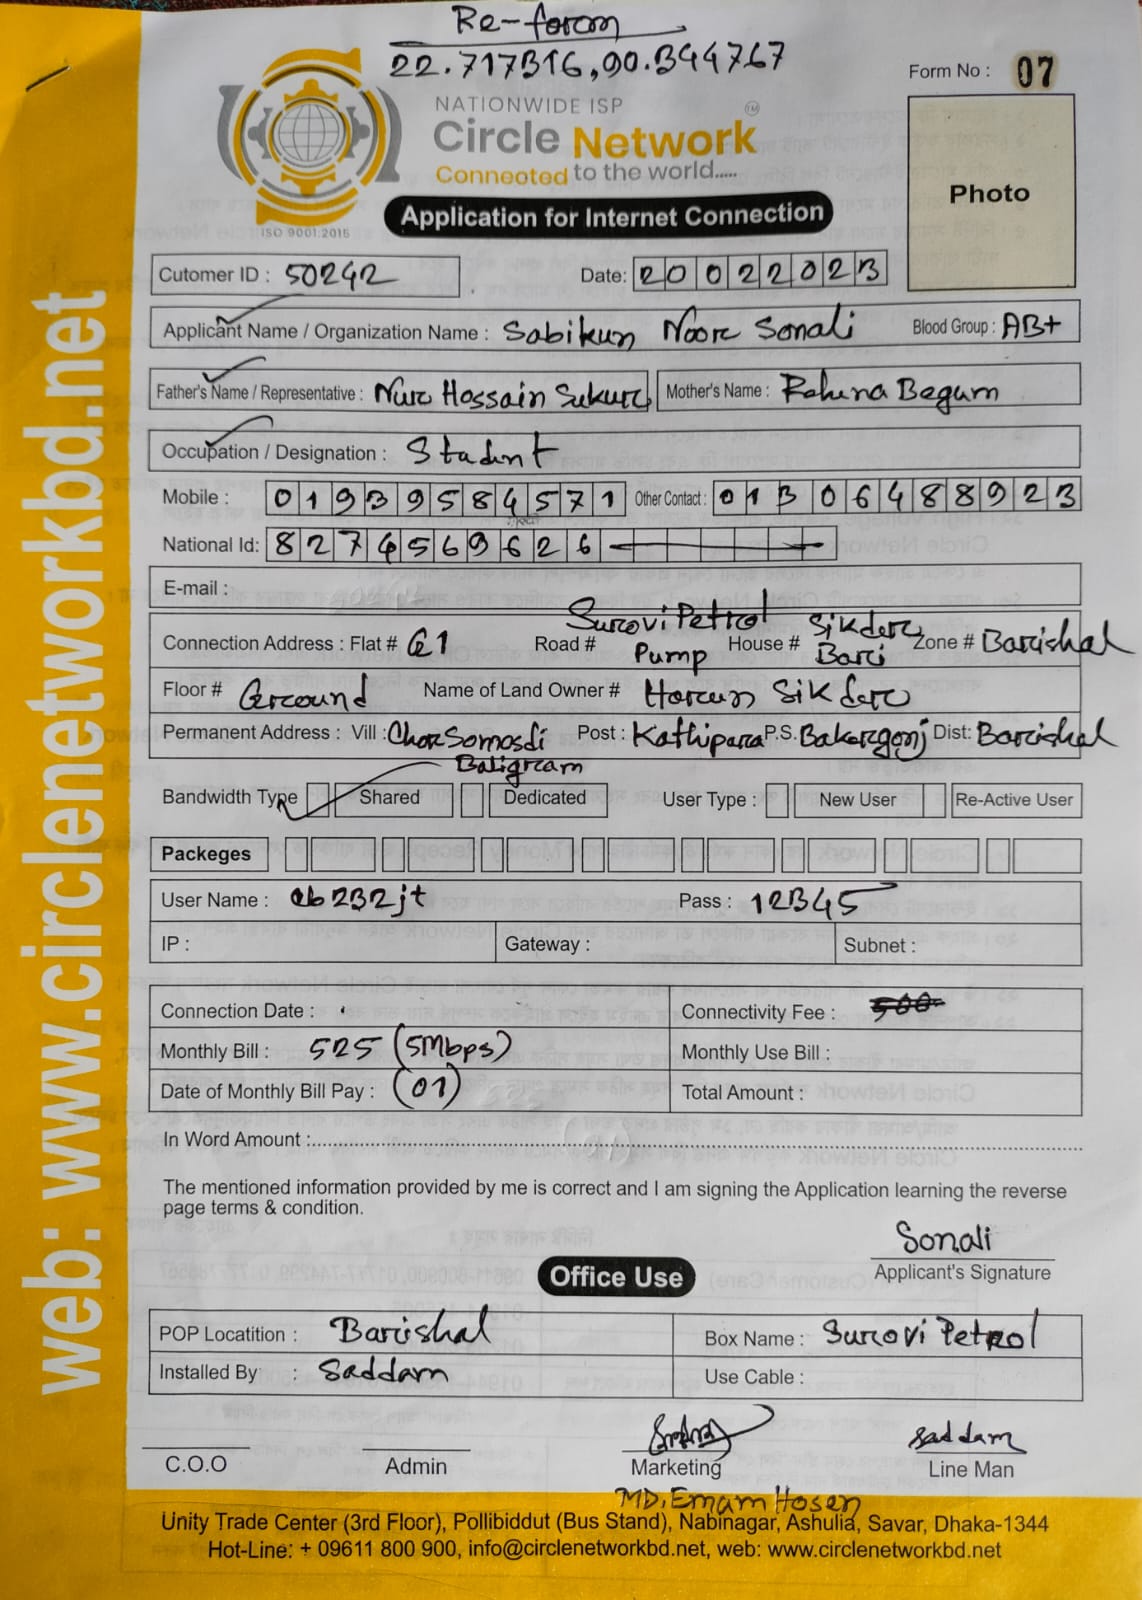 Re-form
22.717316,90.344767
Form No : 07
NATIONWIDE ISP
Circle Network
TM
Connected to the world.....
ISO 9001:2015
Application for Internet Connection
Photo
Cutomer ID : 50242
Date: 20022023
Applicant Name / Organization Name : Sabikun Noor Sonali Blood Group : AB+
Father's Name / Representative : Nur Hossain Sukur Mother's Name : Rahima Begum
Occupation / Designation : Stadent
Mobile : 01939584571 Other Contact : 01306488923
National Id: 8274569626
E-mail :
Connection Address : Flat # G1 Road # Surovi Petrol Pump House # Sikder Bari Zone # Barishal
Floor # Ground Name of Land Owner # Harun Sikder
Permanent Address : Vill : Chor Somosdi Post : Kathipara P.S. Bakergonj Dist: Barishal
Baligram
Bandwidth Type Shared Dedicated User Type : New User Re-Active User
Packeges
User Name : cb232jt Pass : 12345
IP : Gateway : Subnet :
Connection Date : Connectivity Fee : 500
Monthly Bill : 525 (5Mbps) Monthly Use Bill :
Date of Monthly Bill Pay : (01) Total Amount :
In Word Amount :
The mentioned information provided by me is correct and I am signing the Application learning the reverse
page terms & condition.
Sonali
Applicant's Signature
Office Use
POP Locatition : Barishal Box Name : Surovi Petrol
Installed By : Saddam Use Cable :
saddam
C.O.O Admin Marketing Line Man
MD. Emam Hosen
Unity Trade Center (3rd Floor), Pollibiddut (Bus Stand), Nabinagar, Ashulia, Savar, Dhaka-1344
Hot-Line: + 09611 800 900, info@circlenetworkbd.net, web: www.circlenetworkbd.net
web: www.circlenetworkbd.net